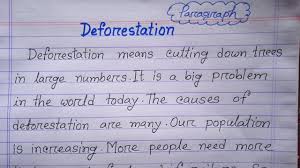 Paragraph
Deforestation
Deforestation means cutting down trees
in large numbers. It is a big problem
in the world today. The causes of
deforestation are many. Our population
is increasing. More people need more